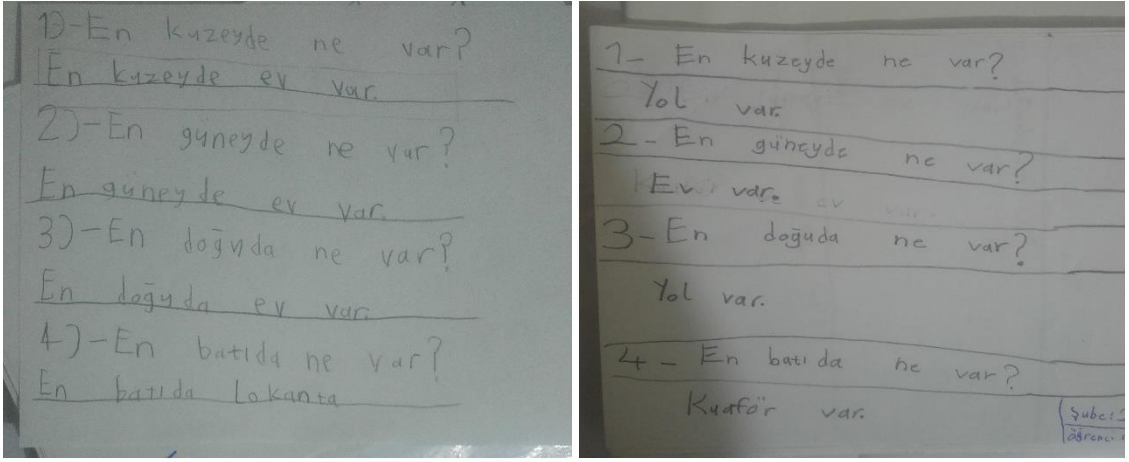 1)-En kuzeyde ne var?
En kuzeyde ev var.
2)-En güneyde ne var?
En güneyde ev var.
3)-En doğuda ne var?
En doğuda ev var.
4)-En batıda ne var?
En batıda Lokanta
1- En kuzeyde ne var?
Yol var.
2- En güneyde ne var?
Ev var.
3- En doğuda ne var?
Yol var.
4- En batıda ne var?
Kuaför var.
Şube: